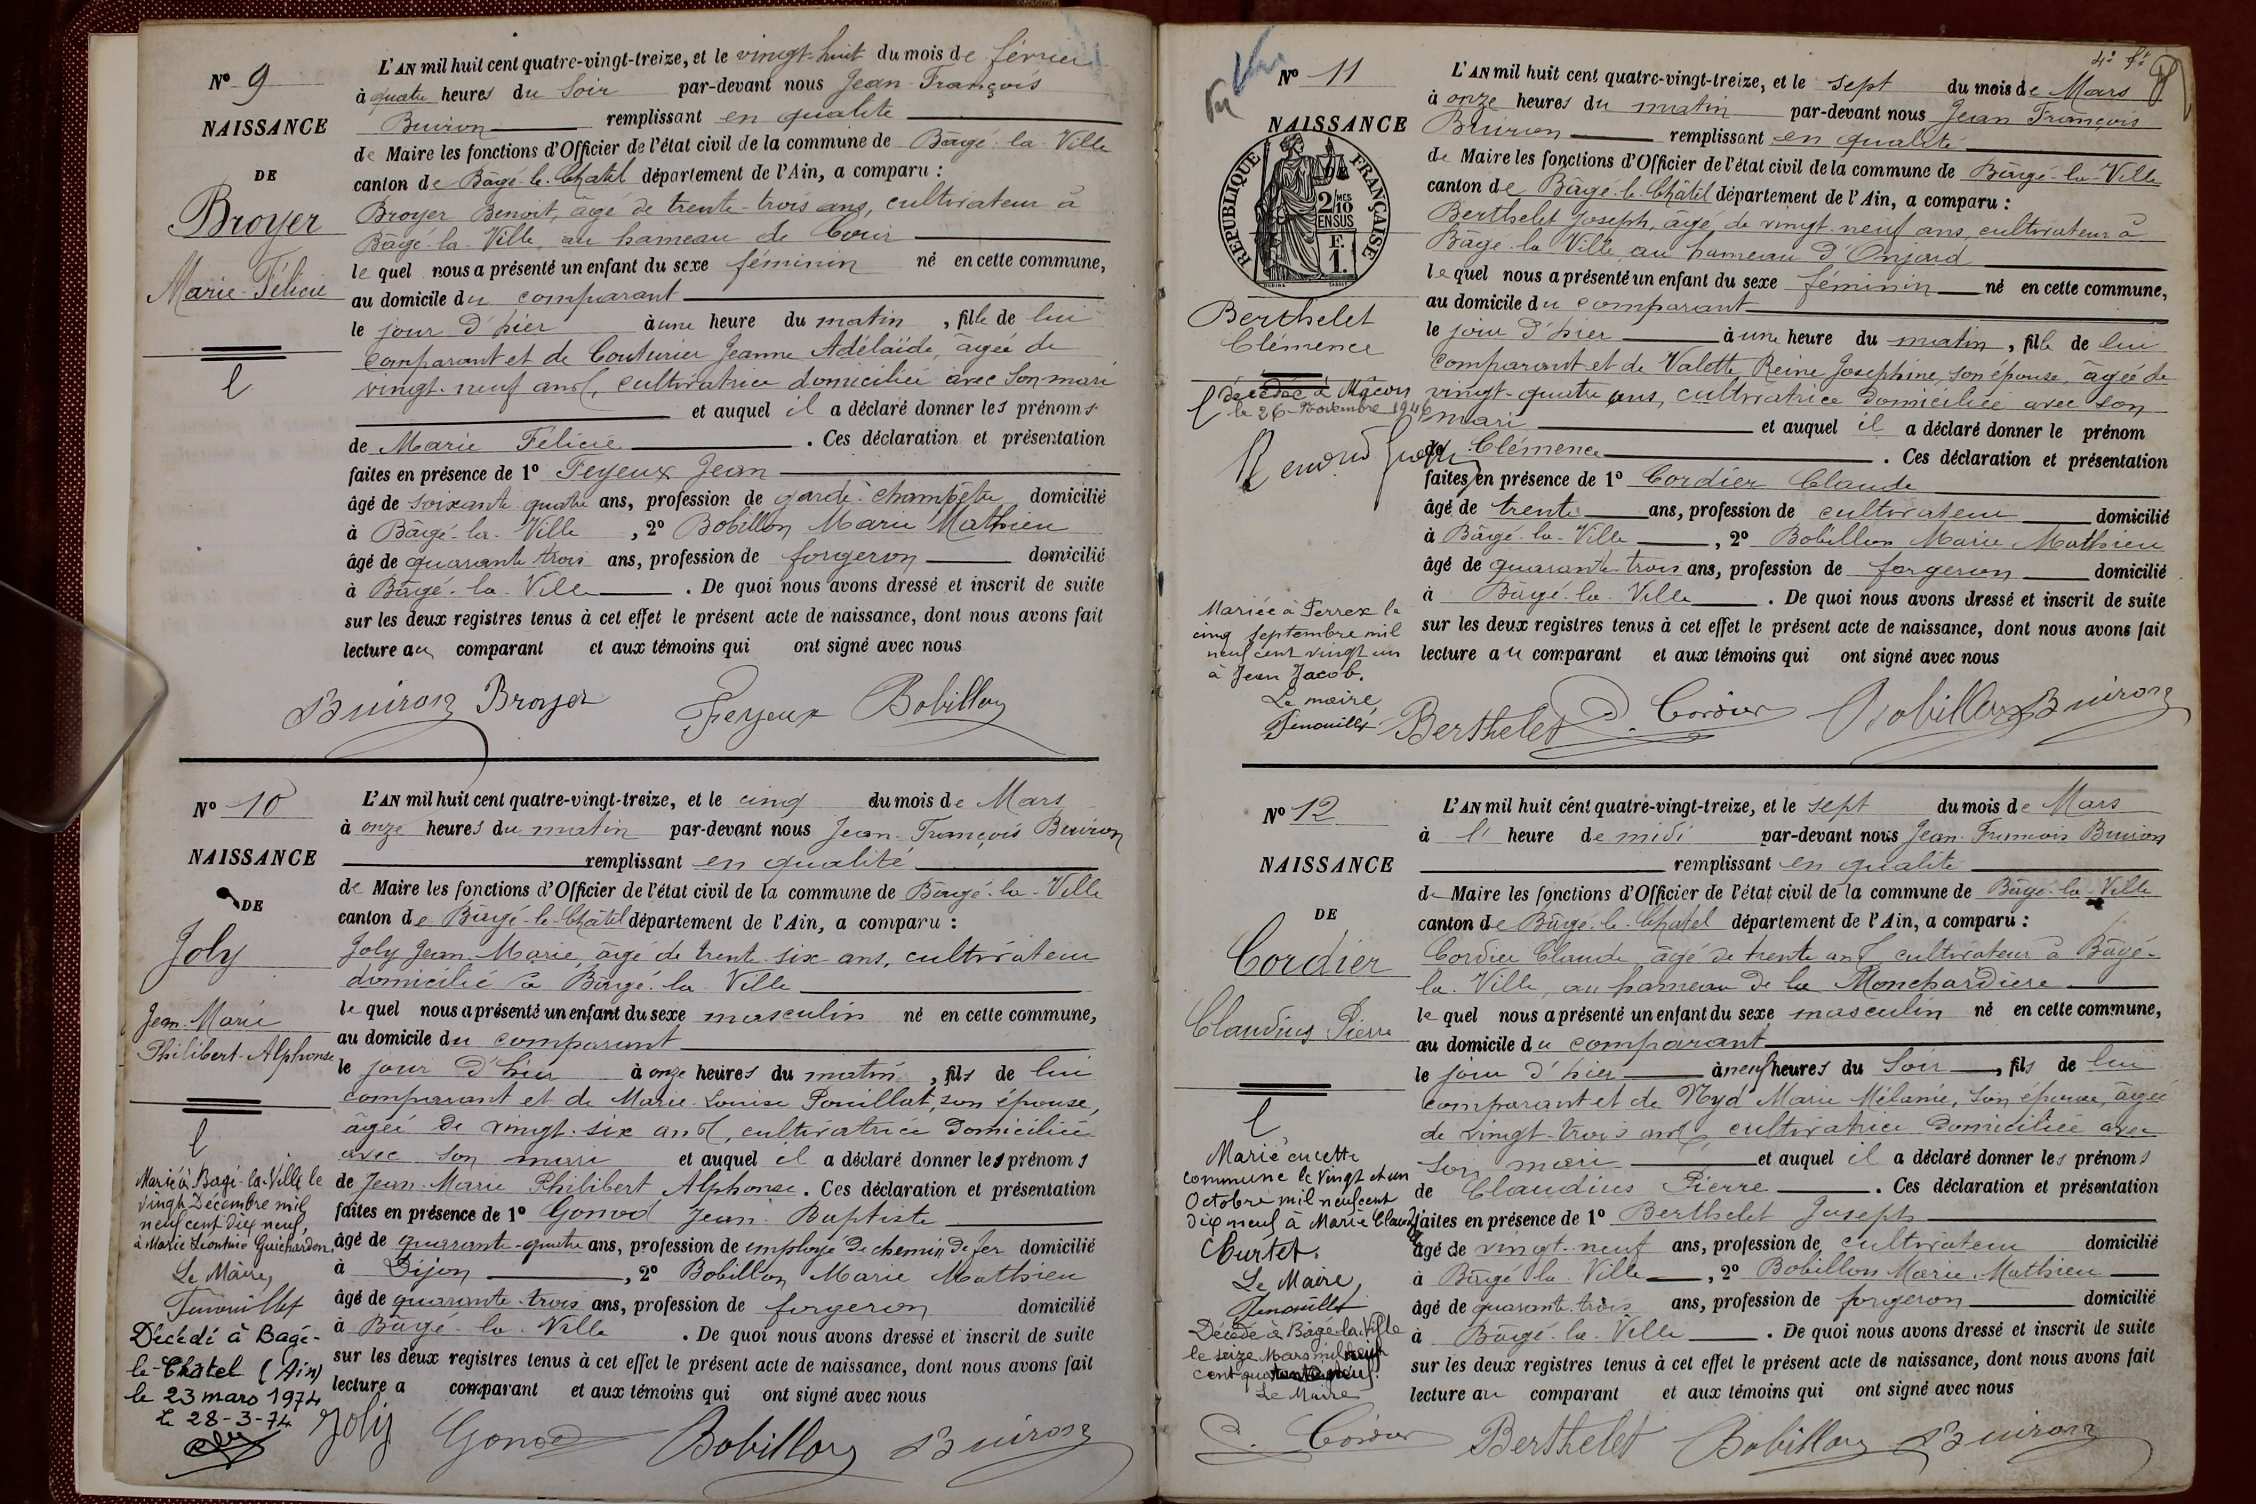 Nº 9
NAISSANCE
DE
Broyer
Marie-Félicie
L'AN mil huit cent quatre-vingt-treize, et le vingt-huit du mois de février
à quatre heures du soir par-devant nous Jean-François
Buiron remplissant en qualité
de Maire les fonctions d'Officier de l'état civil de la commune de Bâgé-la-Ville
canton de Bâgé-le-Chatel département de l'Ain, a comparu :
Broyer Benoit, âgé de trente-trois ans, cultivateur à
Bâgé-la-Ville, au hameau de
le quel nous a présenté un enfant du sexe féminin né en cette commune,
au domicile du comparant
le jour d'hier à une heure du matin, fille de lui
comparant et de Couturier Jeanne Adélaïde, âgée de
vingt-neuf ans, cultivatrice domiciliée avec son mari
et auquel il a déclaré donner les prénoms
de Marie Félicie. Ces déclaration et présentation
faites en présence de 1º Feyeux Jean
âgé de soixante quatre ans, profession de garde-champêtre domicilié
à Bâgé-la-Ville, 2º Bobillon Marie Mathieu
âgé de quarante trois ans, profession de forgeron domicilié
à Bâgé-la-Ville. De quoi nous avons dressé et inscrit de suite
sur les deux registres tenus à cet effet le présent acte de naissance, dont nous avons fait
lecture au comparant et aux témoins qui ont signé avec nous
Buiron Broyer Feyeux Bobillon
Nº 10
NAISSANCE
DE
Joly
Jean-Marie
Philibert-Alphonse
Marié à Bagé-la-Ville le
vingt Décembre mil
neuf cent dix neuf,
à Marie Léontine Guichardon.
Le Maire,
Fenouillet
Décédé à Bagé-
le-Châtel (Ain)
le 23 mars 1974
Le 28-3-74
L'AN mil huit cent quatre-vingt-treize, et le cinq du mois de Mars
à onze heures du matin par-devant nous Jean-François Buiron
remplissant en qualité
de Maire les fonctions d'Officier de l'état civil de la commune de Bâgé-la-Ville
canton de Bâgé-le-Châtel département de l'Ain, a comparu :
Joly Jean-Marie, âgé de trente-six ans, cultivateur
domicilié à Bâgé-la-Ville
le quel nous a présenté un enfant du sexe masculin né en cette commune,
au domicile du comparant
le jour d'hier à onze heures du matin, fils de lui
comparant et de Marie-Louise Pouillat, son épouse,
âgée de vingt-six ans, cultivatrice domiciliée
avec son mari et auquel il a déclaré donner les prénoms
de Jean-Marie Philibert Alphonse. Ces déclaration et présentation
faites en présence de 1º Gonod Jean-Baptiste
âgé de quarante-quatre ans, profession de employé de chemin de fer domicilié
à Dijon, 2º Bobillon Marie Mathieu
âgé de quarante-trois ans, profession de forgeron domicilié
à Bâgé-la-Ville. De quoi nous avons dressé et inscrit de suite
sur les deux registres tenus à cet effet le présent acte de naissance, dont nous avons fait
lecture a comparant et aux témoins qui ont signé avec nous
Joly Gonod Bobillon Buiron
4º fº
Nº 11
NAISSANCE
RÉPUBLIQUE FRANÇAISE
2/10 MES
EN SUS
F.
1.
Berthelet
Clémence
décédée à Mâcon
le 26 Novembre 1946
Mariée à Perrex le
cinq septembre mil
neuf cent vingt un
à Jean Jacob.
Le maire,
Fenouillet
L'AN mil huit cent quatre-vingt-treize, et le sept du mois de Mars
à onze heures du matin par-devant nous Jean François
Buiron remplissant en qualité
de Maire les fonctions d'Officier de l'état civil de la commune de Bâgé-la-Ville
canton de Bâgé-le-Châtel département de l'Ain, a comparu :
Berthelet Joseph, âgé de vingt-neuf ans, cultivateur à
Bâgé-la-Ville, au hameau d'Onjard
le quel nous a présenté un enfant du sexe féminin né en cette commune,
au domicile du comparant
le jour d'hier à une heure du matin, fille de lui
comparant et de Valette Reine Joséphine, son épouse, âgée de
vingt-quatre ans, cultivatrice domiciliée avec son
mari et auquel il a déclaré donner le prénom
de Clémence. Ces déclaration et présentation
faites en présence de 1º Cordier Claude
âgé de trente ans, profession de cultivateur domicilié
à Bâgé-la-Ville, 2º Bobillon Marie Mathieu
âgé de quarante-trois ans, profession de forgeron domicilié
à Bâgé-la-Ville. De quoi nous avons dressé et inscrit de suite
sur les deux registres tenus à cet effet le présent acte de naissance, dont nous avons fait
lecture au comparant et aux témoins qui ont signé avec nous
Berthelet C. Cordier Bobillon Buiron
Nº 12
NAISSANCE
DE
Cordier
Claudius Pierre
Marié en cette
commune le vingt et un
Octobre mil neuf cent
dix neuf à Marie Claudia
Curtet.
Le Maire,
Fenouillet
Décédé à Bâgé-la-Ville
le seize Mars mil neuf
cent
Le Maire
L'AN mil huit cent quatre-vingt-treize, et le sept du mois de Mars
à l' heure de midi par-devant nous Jean-François Buiron
remplissant en qualité
de Maire les fonctions d'Officier de l'état civil de la commune de Bâgé-la-Ville
canton de Bâgé-le-Chatel département de l'Ain, a comparu :
Cordier Claude, âgé de trente ans, cultivateur à Bâgé-
la-Ville, au hameau de la Monchardière
le quel nous a présenté un enfant du sexe masculin né en cette commune,
au domicile du comparant
le jour d'hier à neuf heures du soir, fils de lui
comparant et de Nyd Marie Mélanie, son épouse, âgée
de vingt-trois ans, cultivatrice domiciliée avec
son mari et auquel il a déclaré donner les prénoms
de Claudius Pierre. Ces déclaration et présentation
faites en présence de 1º Berthelet Joseph
âgé de vingt-neuf ans, profession de cultivateur domicilié
à Bâgé la Ville, 2º Bobillon Marie Mathieu
âgé de quarante-trois ans, profession de forgeron domicilié
à Bâgé-la-Ville. De quoi nous avons dressé et inscrit de suite
sur les deux registres tenus à cet effet le présent acte de naissance, dont nous avons fait
lecture au comparant et aux témoins qui ont signé avec nous
C. Cordier Berthelet Bobillon Buiron